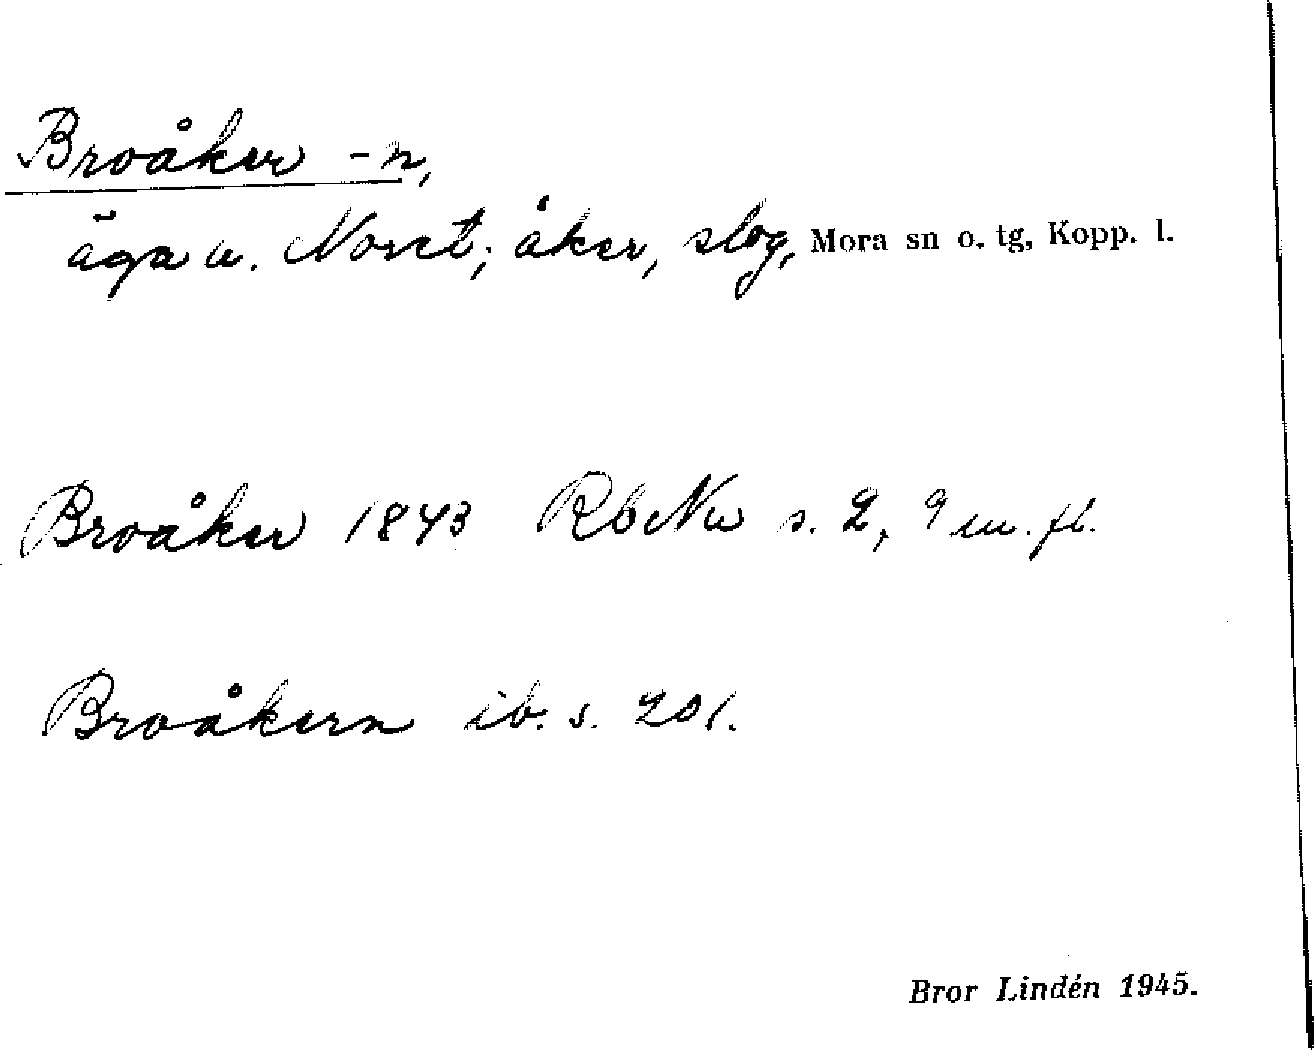 Broåker -n,
äga u. Noret; åker, slog, Mora sn o. tg, Kopp. l.
Broåker 1843 RbNu s. 2, 9 m. fl.
Broåkern ib. s. 201.
Bror Lindén 1945.